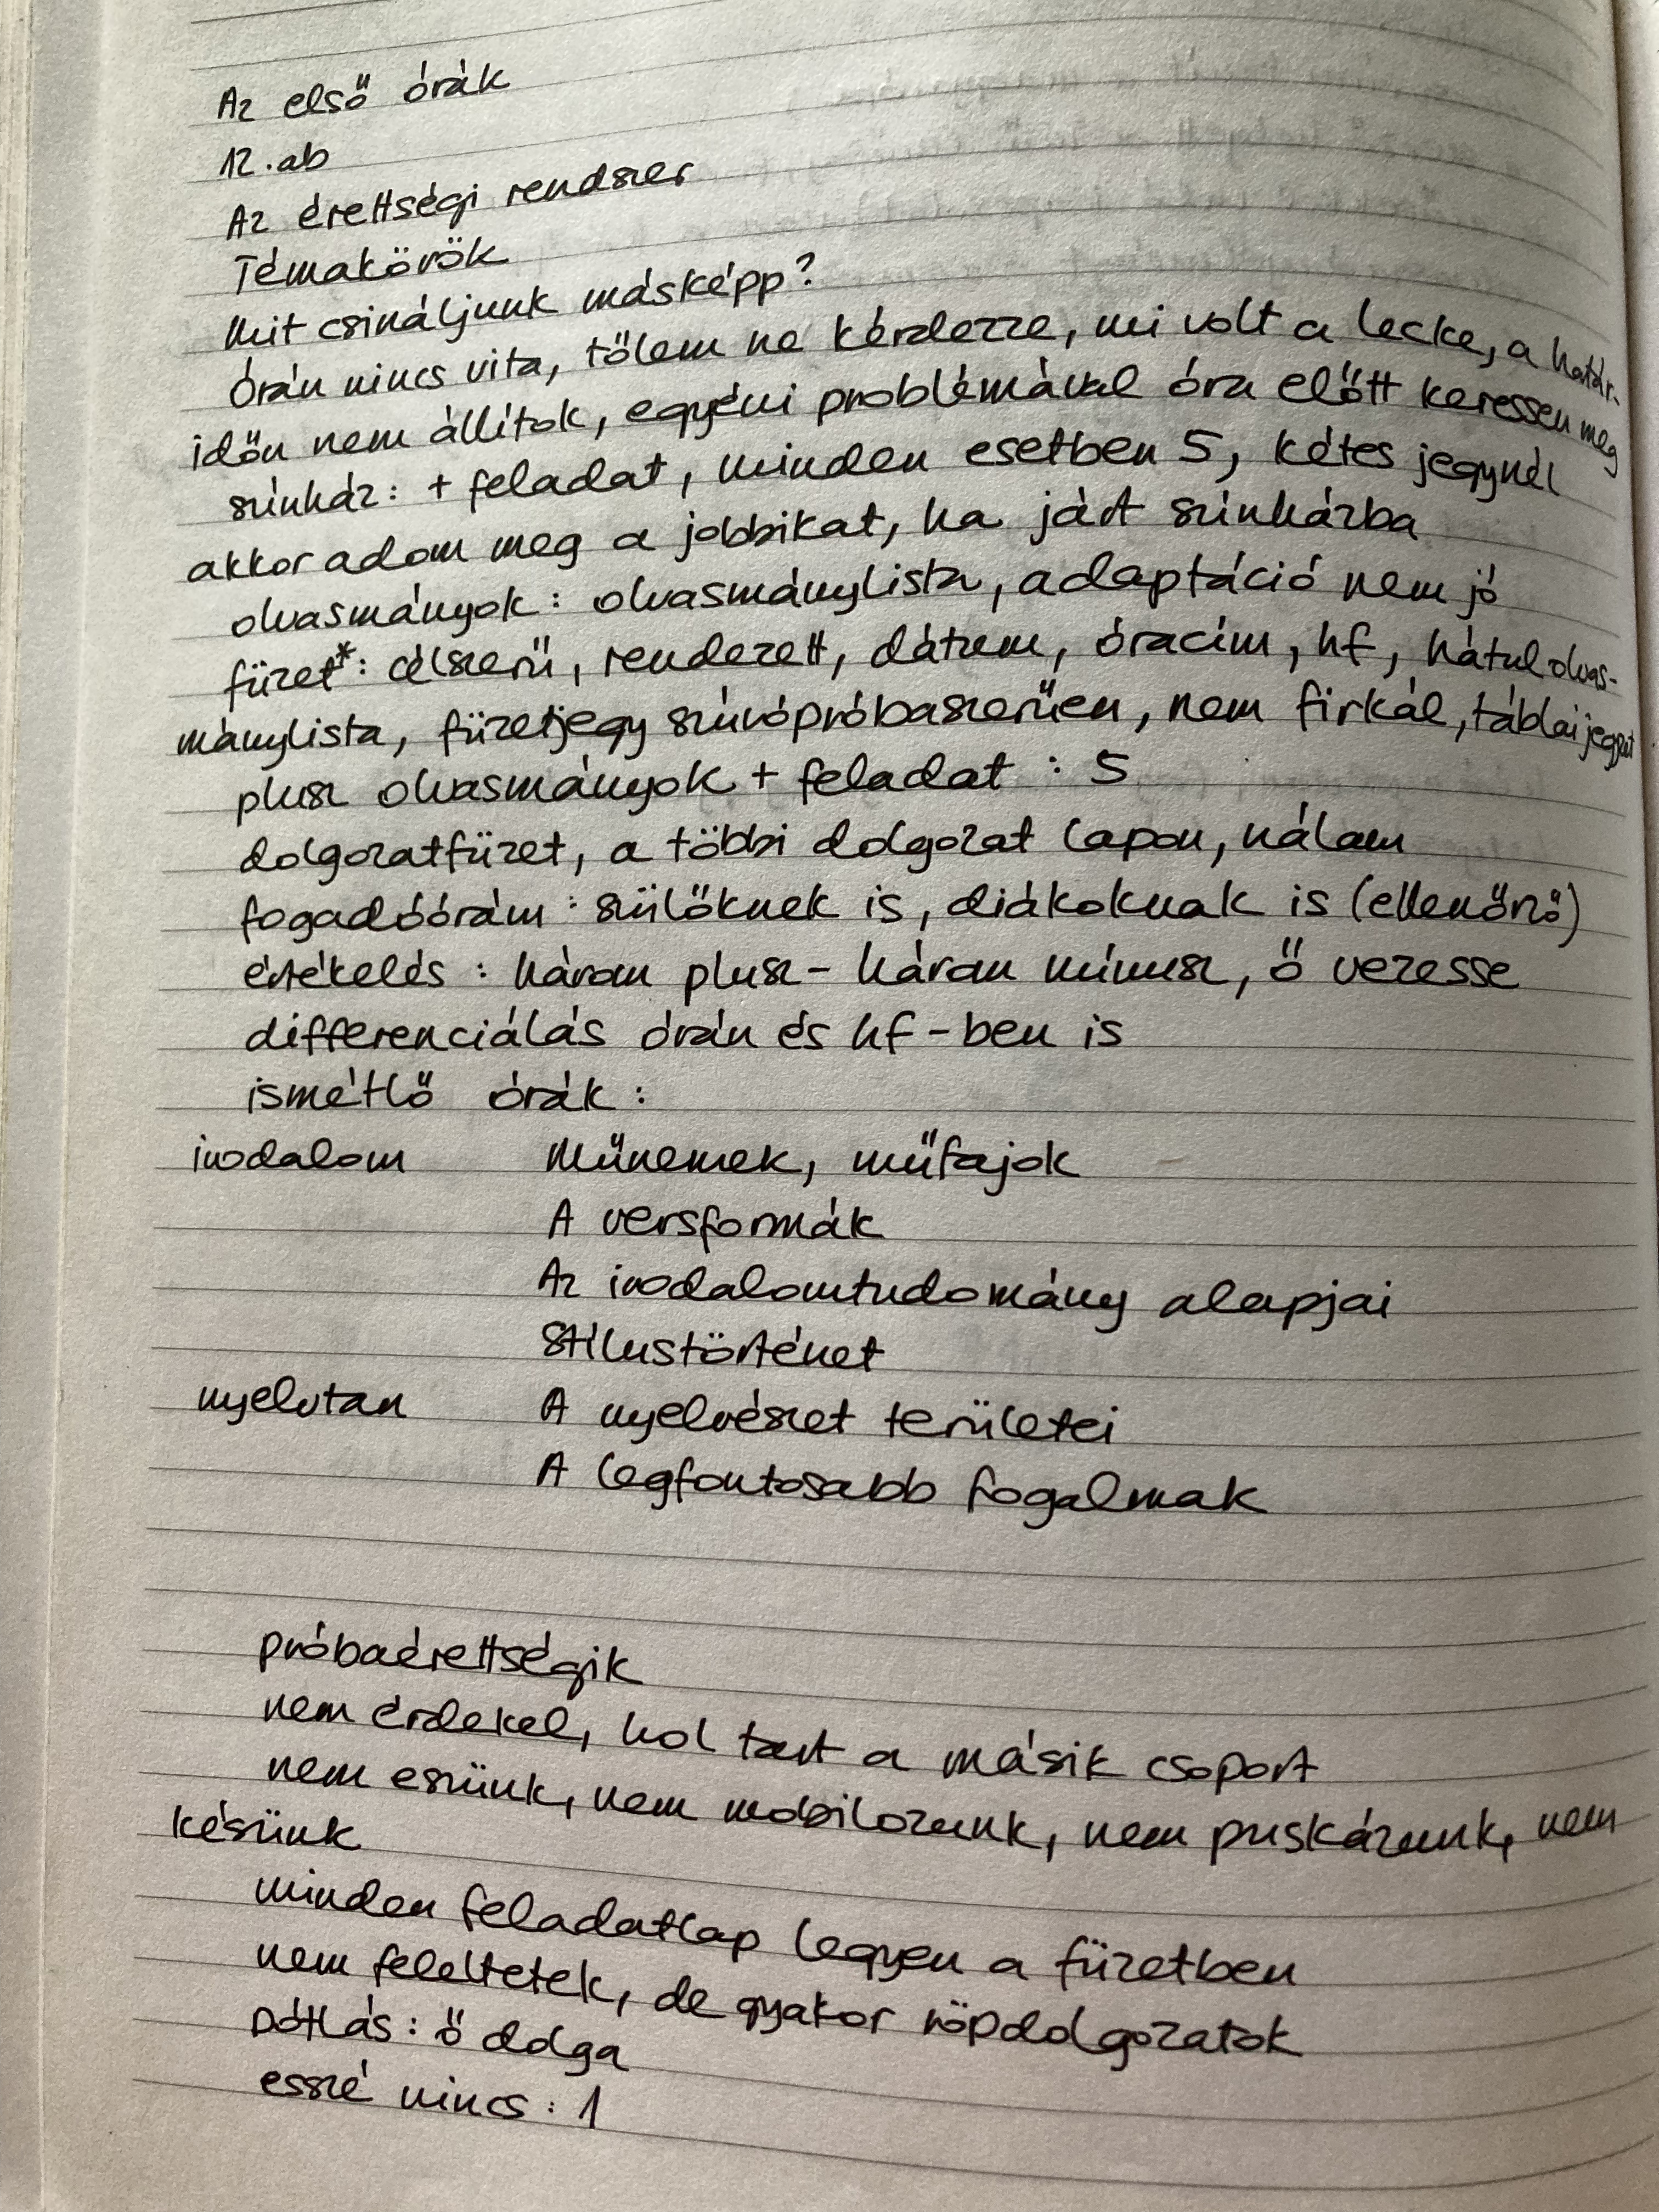 Az első órák
12.ab
Az érettségi rendszer
Témakörök
Mit csináljunk másképp?
Órán nincs vita, tőlem ne kérdezze, mi volt a lecke, a határ-
időn nem állítok, egyéni problémával óra előtt keressen meg
színház: + feladat, minden esetben 5, kétes jegynél
akkor adom meg a jobbikat, ha járt színházba
olvasmányok: olvasmánylista, adaptáció nem jó
füzet*: célszerű, rendezett, dátum, óracím, hf, hátul olvas-
mánylista, füzetjegy szúrópróbaszerűen, nem firkál, táblai jegyzet
plusz olvasmányok + feladat : 5
dolgozatfüzet, a többi dolgozat lapon, nálam
fogadóórám : szülőknek is, diákoknak is (ellenőrző)
értékelés : három plusz - három mínusz, ő vezesse
differenciálás órán és hf-ben is
ismétlő órák :
irodalom Műnemek, műfajok
A versformák
Az irodalomtudomány alapjai
Stílustörténet
nyelvtan A nyelvészet területei
A legfontosabb fogalmak
próbaérettségik
nem érdekel, hol tart a másik csoport
nem eszünk, nem mobilozunk, nem puskázunk, nem
késünk
minden feladatlap legyen a füzetben
nem feleltetek, de gyakor röpdolgozatok
pótlás: ő dolga
esszé nincs : 1